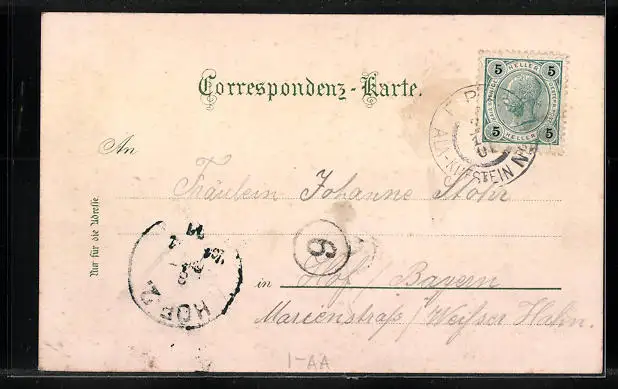 Correspondenz-Karte.
5 HELLER 5
5 HELLER 5
KUFSTEIN
An
Fräulein Johanne Stohr
Nur für die Adresse
6
in Hof / Bayern
HOF 2.
Marienstraß / Weißer Hahn.
1-AA